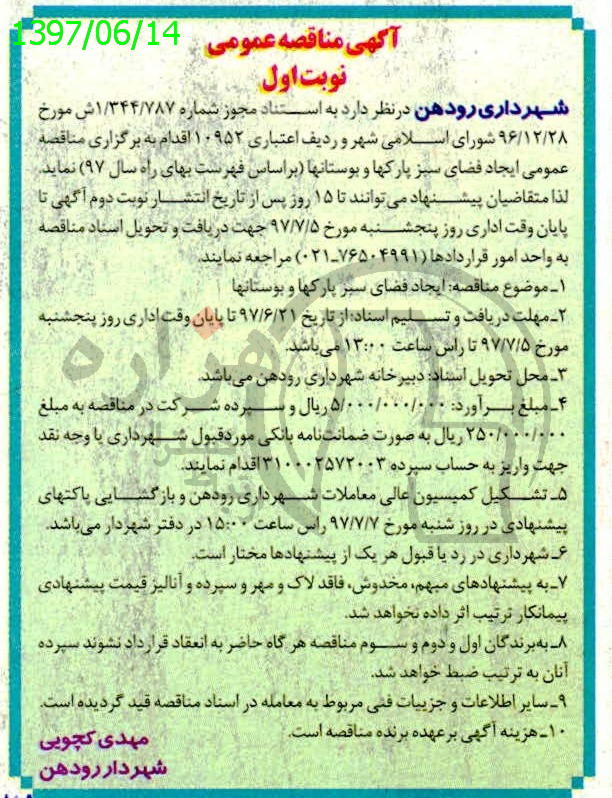 1397/06/14
آگهی مناقصه عمومی
نوبت اول
شهرداری رودهن درنظر دارد به استناد مجوز شماره ۱/۳۴۴/۷۸۷ش مورخ
۹۶/۱۲/۲۸ شورای اسلامی شهر و ردیف اعتباری ۱۰۹۵۲ اقدام به برگزاری مناقصه
عمومی ایجاد فضای سبز پارکها و بوستانها (براساس فهرست بهای راه سال ۹۷) نماید.
لذا متقاضیان پیشنهاد می‌توانند تا ۱۵ روز پس از تاریخ انتشار نوبت دوم آگهی تا
پایان وقت اداری روز پنجشنبه مورخ ۹۷/۷/۵ جهت دریافت و تحویل اسناد مناقصه
به واحد امور قراردادها (۷۶۵۰۴۹۹۱-۰۲۱) مراجعه نمایند.
۱ـ موضوع مناقصه: ایجاد فضای سبز پارکها و بوستانها
۲ـ مهلت دریافت و تسلیم اسناد: از تاریخ ۹۷/۶/۲۱ تا پایان وقت اداری روز پنجشنبه
مورخ ۹۷/۷/۵ تا راس ساعت ۱۳:۰۰ می‌باشد.
۳ـ محل تحویل اسناد: دبیرخانه شهرداری رودهن می‌باشد.
۴ـ مبلغ برآورد: ۵/۰۰۰/۰۰۰/۰۰۰ ریال و سپرده شرکت در مناقصه به مبلغ
۲۵۰/۰۰۰/۰۰۰ ریال به صورت ضمانت‌نامه بانکی موردقبول شهرداری یا وجه نقد
جهت واریز به حساب سپرده ۳۱۰۰۰۲۵۷۲۰۰۳ اقدام نمایند.
۵ـ تشکیل کمیسیون عالی معاملات شهرداری رودهن و بازگشایی پاکتهای
پیشنهادی در روز شنبه مورخ ۹۷/۷/۷ راس ساعت ۱۵:۰۰ در دفتر شهردار می‌باشد.
۶ـ شهرداری در رد یا قبول هر یک از پیشنهادها مختار است.
۷ـ به پیشنهادهای مبهم، مخدوش، فاقد لاک و مهر و سپرده و آنالیز قیمت پیشنهادی
پیمانکار ترتیب اثر داده نخواهد شد.
۸ـ به‌برندگان اول و دوم و سوم مناقصه هر گاه حاضر به انعقاد قرارداد نشوند سپرده
آنان به ترتیب ضبط خواهد شد.
۹ـ سایر اطلاعات و جزییات فنی مربوط به معامله در اسناد مناقصه قید گردیده است.
۱۰ـ هزینه آگهی برعهده برنده مناقصه است.
مهدی کچویی
شهردار رودهن
هزاره